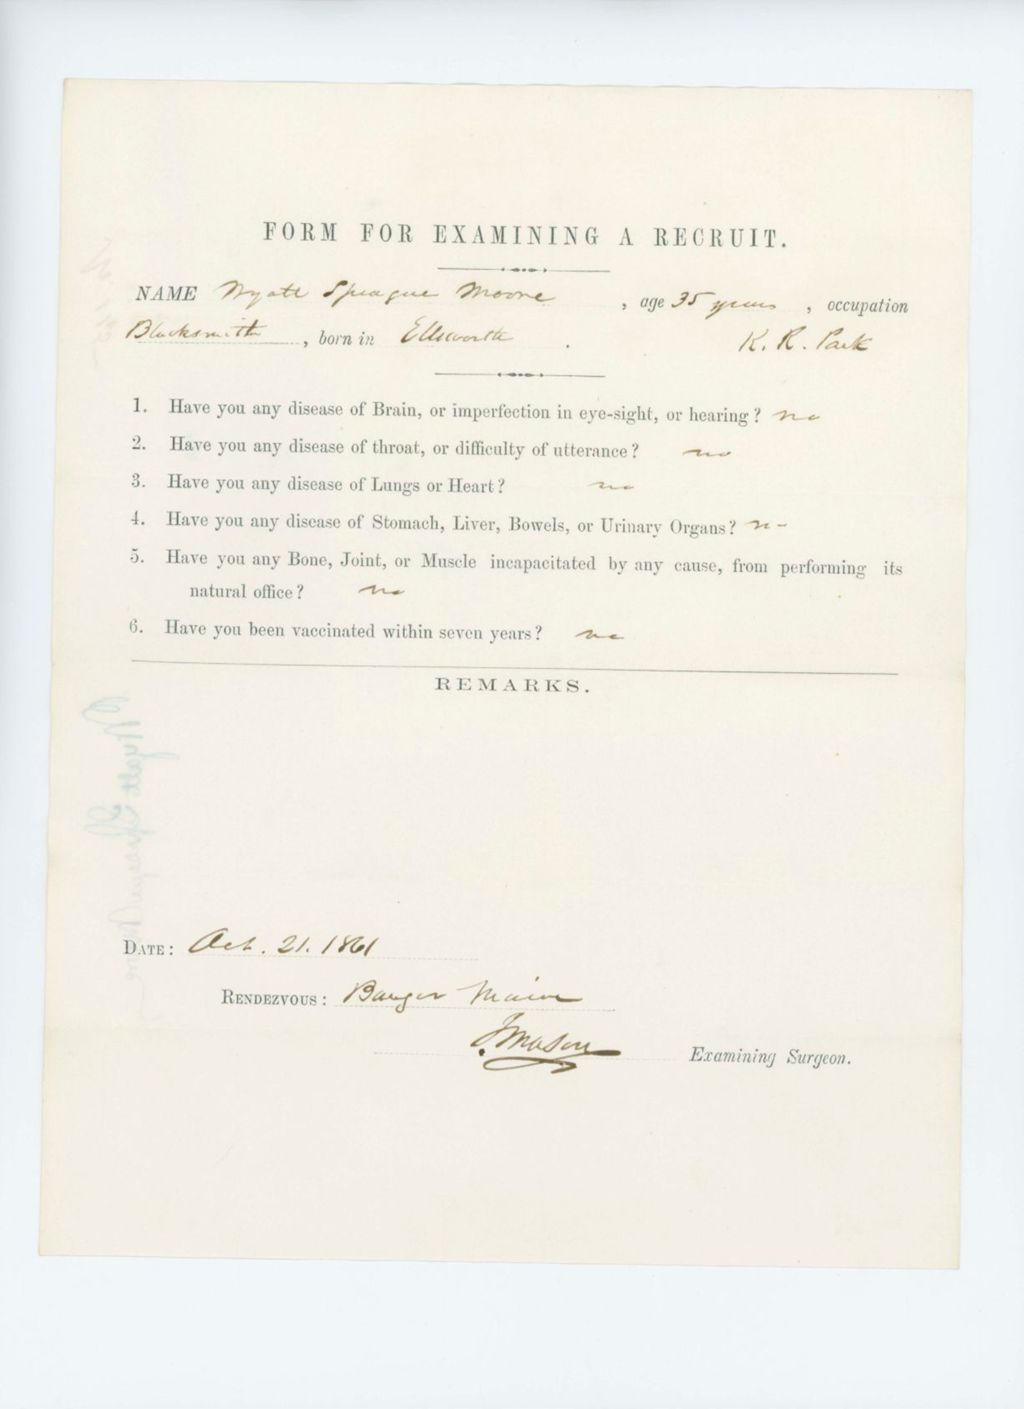 FORM FOR EXAMINING A RECRUIT.
NAME Wyatt Sprague Moore , age 35 years , occupation
Blacksmith , born in Ellsworth . K. R. Park
1. Have you any disease of Brain, or imperfection in eye-sight, or hearing? no
2. Have you any disease of throat, or difficulty of utterance? no
3. Have you any disease of Lungs or Heart? no
4. Have you any disease of Stomach, Liver, Bowels, or Urinary Organs? no
5. Have you any Bone, Joint, or Muscle incapacitated by any cause, from performing its
natural office? no
6. Have you been vaccinated within seven years? no
REMARKS.
DATE: Oct. 21. 1861
RENDEZVOUS: Bangor Maine
Mason Examining Surgeon.